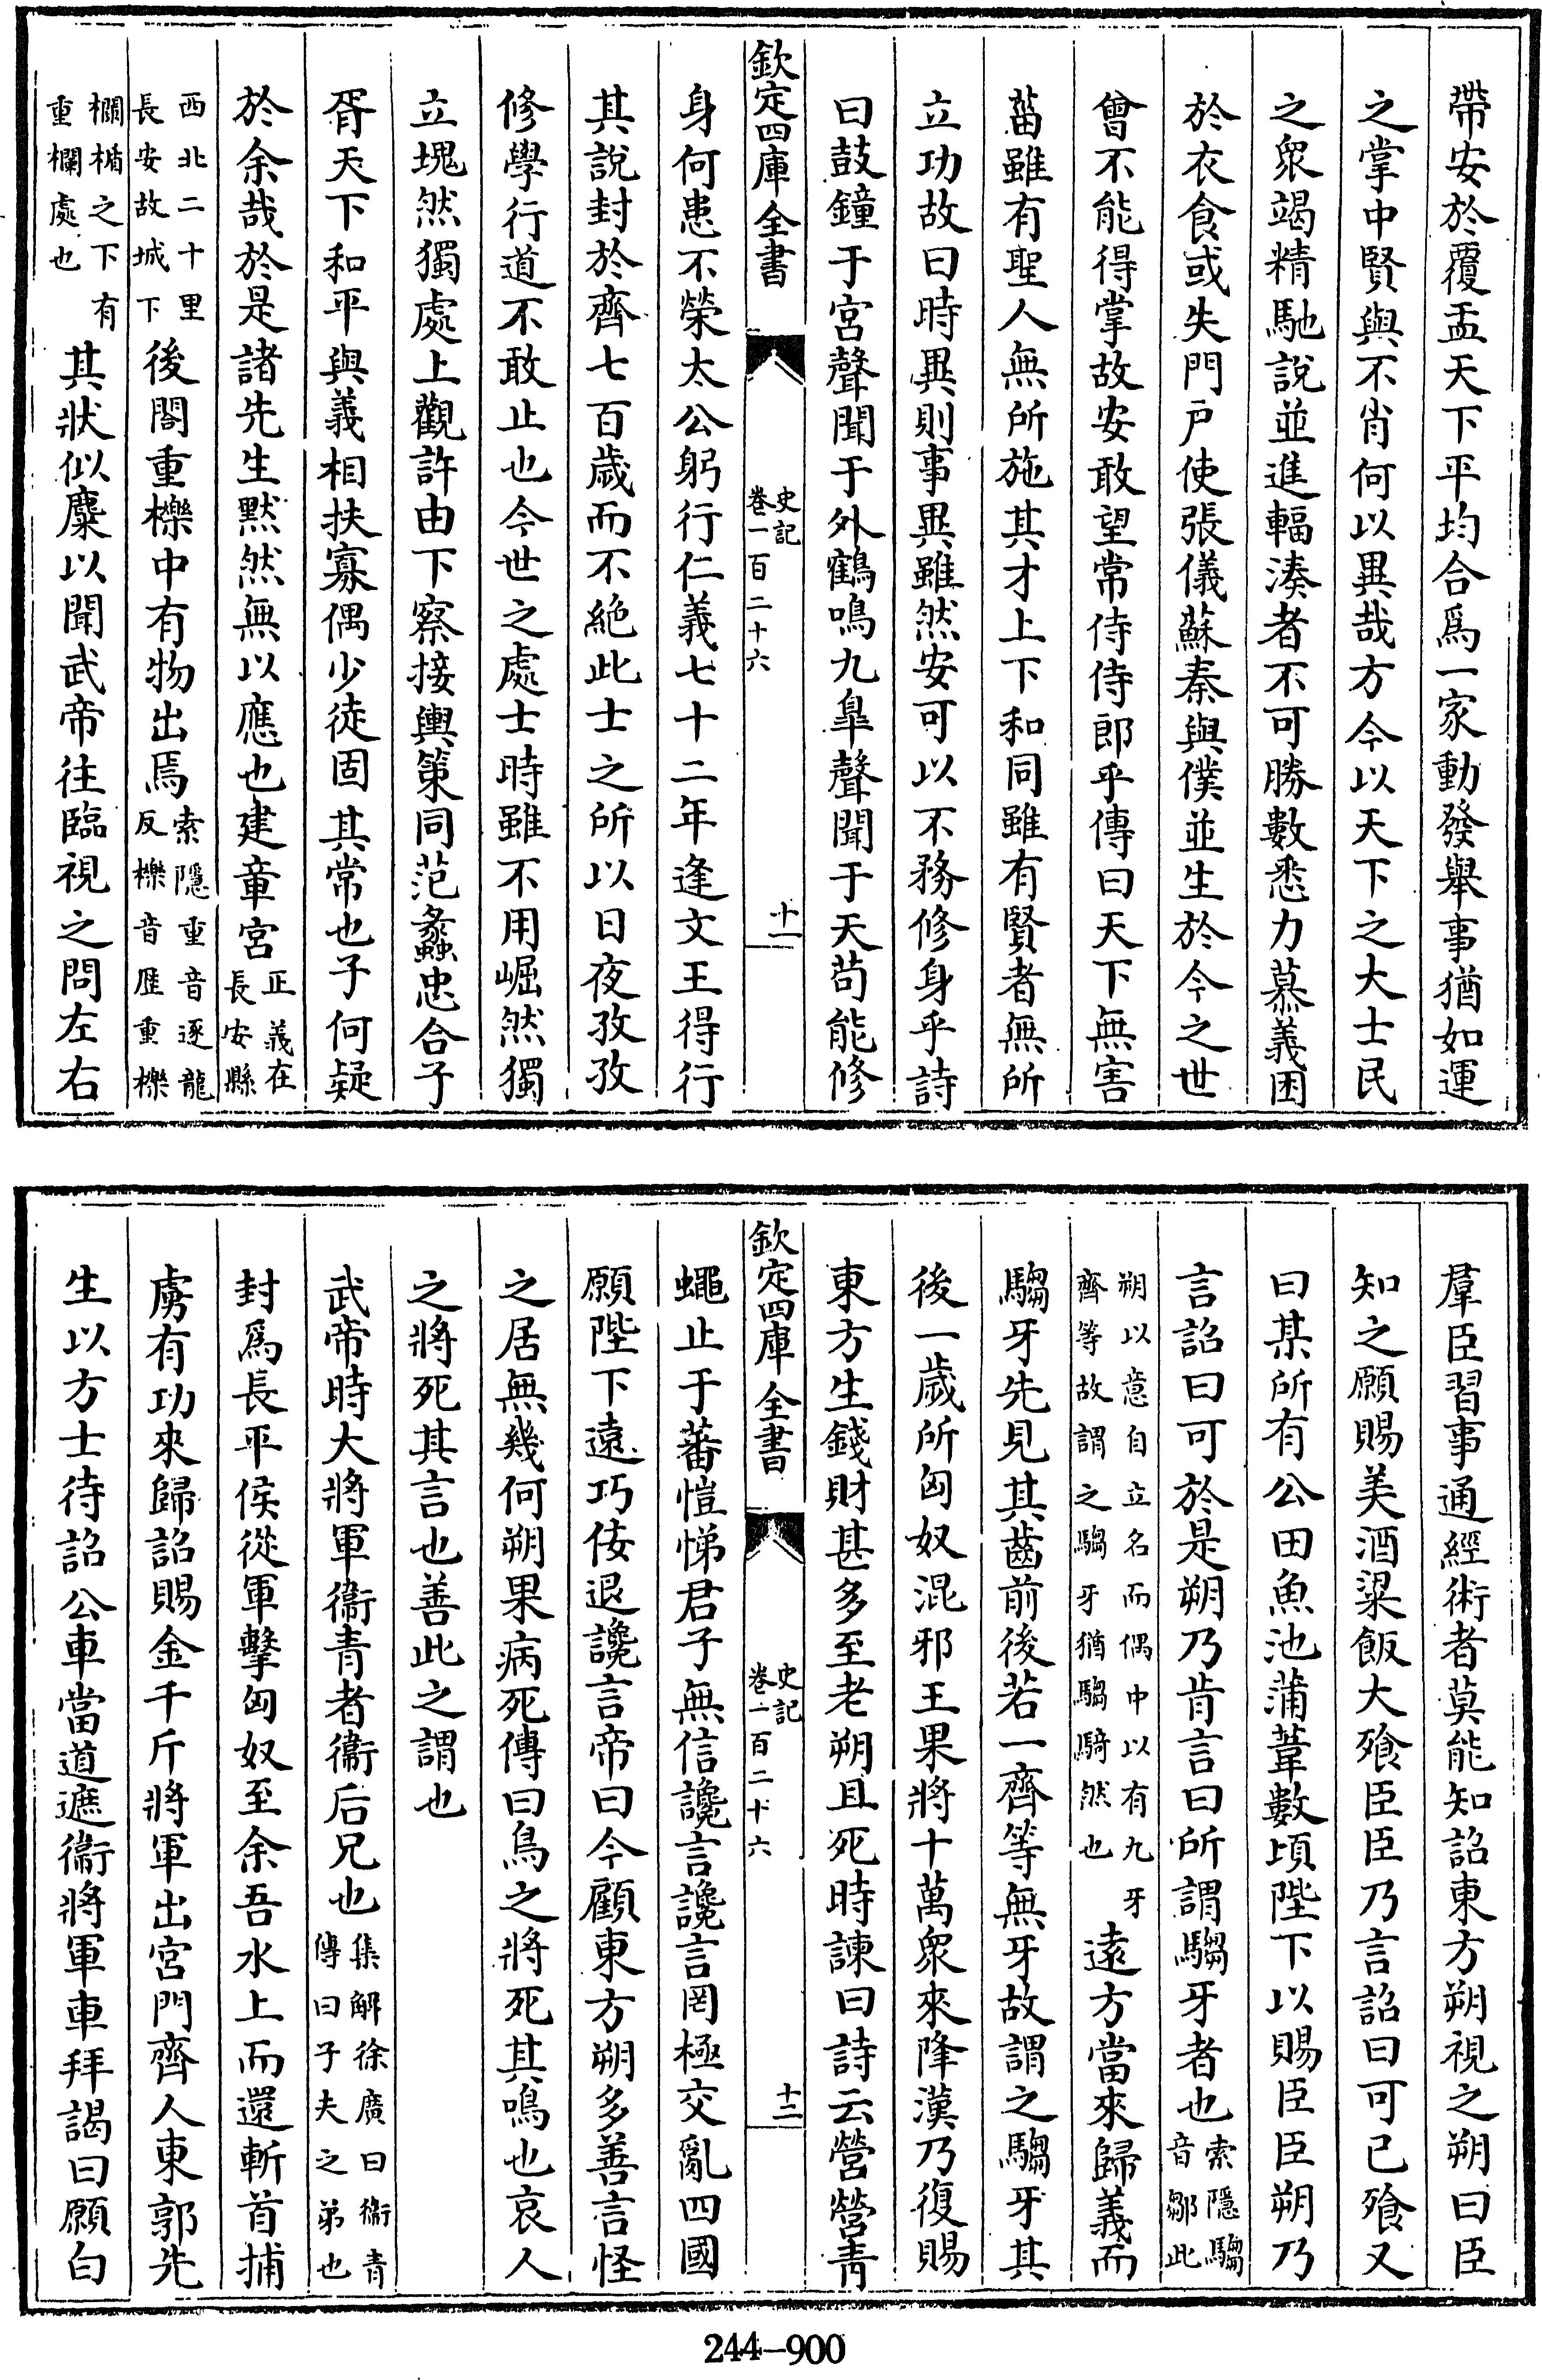 帶安於覆盂天下平均合爲一家動發舉事猶如運
之掌中賢與不肖何以異哉方今以天下之大士民
之衆竭精馳説並進輻湊者不可勝數悉力慕義困
於衣食或失門户使張儀蘇秦與僕並生於今之世
曾不能得掌故安敢望常侍侍郎乎傳曰天下無害
菑雖有聖人無所施其才上下和同雖有賢者無所
立功故曰時異則事異雖然安可以不務修身乎詩
曰鼓鐘于宫聲聞于外鶴鳴九臯聲聞于天苟能修
欽定四庫全書
史記
卷一百二十六
十一
身何患不榮太公躬行仁義七十二年逢文王得行
其説封於齊七百歲而不絶此士之所以日夜孜孜
修學行道不敢止也今世之處士時雖不用崛然獨
立塊然獨處上觀許由下察接輿策同范蠡忠合子
胥天下和平與義相扶寡偶少徒固其常也子何疑
於余哉於是諸先生黙然無以應也建章宮正義在
長安縣
西北二十里
長安故城下後閤重櫟中有物出焉索隱重音逐龍
反櫟音歴重櫟
欄楯之下有
重欄處也其狀似麋以聞武帝往臨視之問左右
羣臣習事通經術者莫能知詔東方朔視之朔曰臣
知之願賜美酒粱飯大飱臣臣乃言詔曰可已飱又
曰某所有公田魚池蒲葦數頃陛下以賜臣臣朔乃
言詔曰可於是朔乃肯言曰所謂騶牙者也索隱騶
音鄒此
朔以意自立名而偶中以有九牙
齊等故謂之騶牙猶騶騎然也遠方當來歸義而
騶牙先見其齒前後若一齊等無牙故謂之騶牙其
後一歲所匈奴混邪王果將十萬衆來降漢乃復賜
東方生錢財甚多至老朔且死時諫曰詩云營營青
欽定四庫全書
史記
卷一百二十六
十二
蠅止于蕃愷悌君子無信讒言讒言罔極交亂四國
願陛下遠巧佞退讒言帝曰今顧東方朔多善言怪
之居無幾何朔果病死傳曰鳥之將死其鳴也哀人
之將死其言也善此之謂也
武帝時大將軍衞青者衞后兄也集解徐廣曰衞青
傳曰子夫之弟也
封爲長平侯從軍擊匈奴至余吾水上而還斬首捕
虜有功來歸詔賜金千斤將軍出宮門齊人東郭先
生以方士待詔公車當道遮衞將軍車拜謁曰願白
244-900